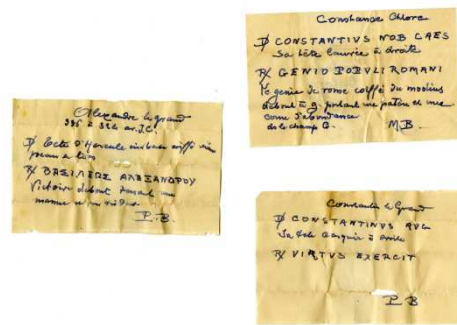 Alexandre le grand
336 à 324 av. J.C.
D/ tete d'Hercule
R/
Victoire debout tenant une
P. B.
Constance Chlore
D/ CONSTANTIVS NOB CAES
Sa tête laurée à droite
R/ GENIO POPVLI ROMANI
le genie de rome coiffé du modius
debout à g. portant une patère et une
corne d'abondance
ds le champ G. M. B.
Constantin le Grand
D/ CONSTANTINVS AVG
Sa tete à droite
R/ VIRTVS EXERCIT
P B